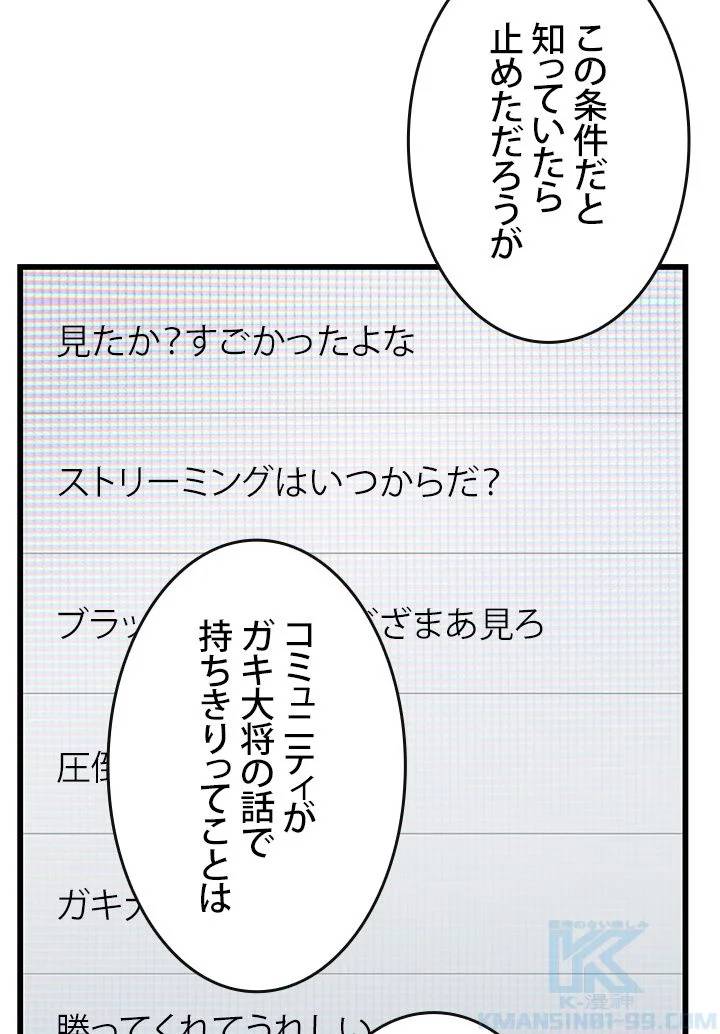 この条件だと
知っていたら
止めただろうが
見たか?すごかったよな
ストリーミングはいつからだ?
ブラッ
ざまあ見ろ
コミュニティが
ガキ大将の話で
持ちきりってことは
圧倒
ガキ大
勝ってくれてうれしい
K-漫神
KMANSIN01-99.COM